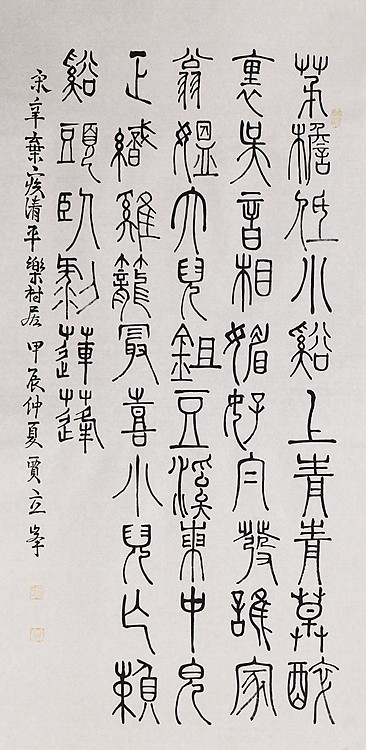 茅檐低小谿上青青草醉
裏吳音相媚好白發誰家
翁媼大兒鉏豆溪東中兒
正織雞籠最喜小兒亡賴
谿頭臥剝蓮蓬
宋辛棄疾清平樂村居 甲辰仲夏賈立峯